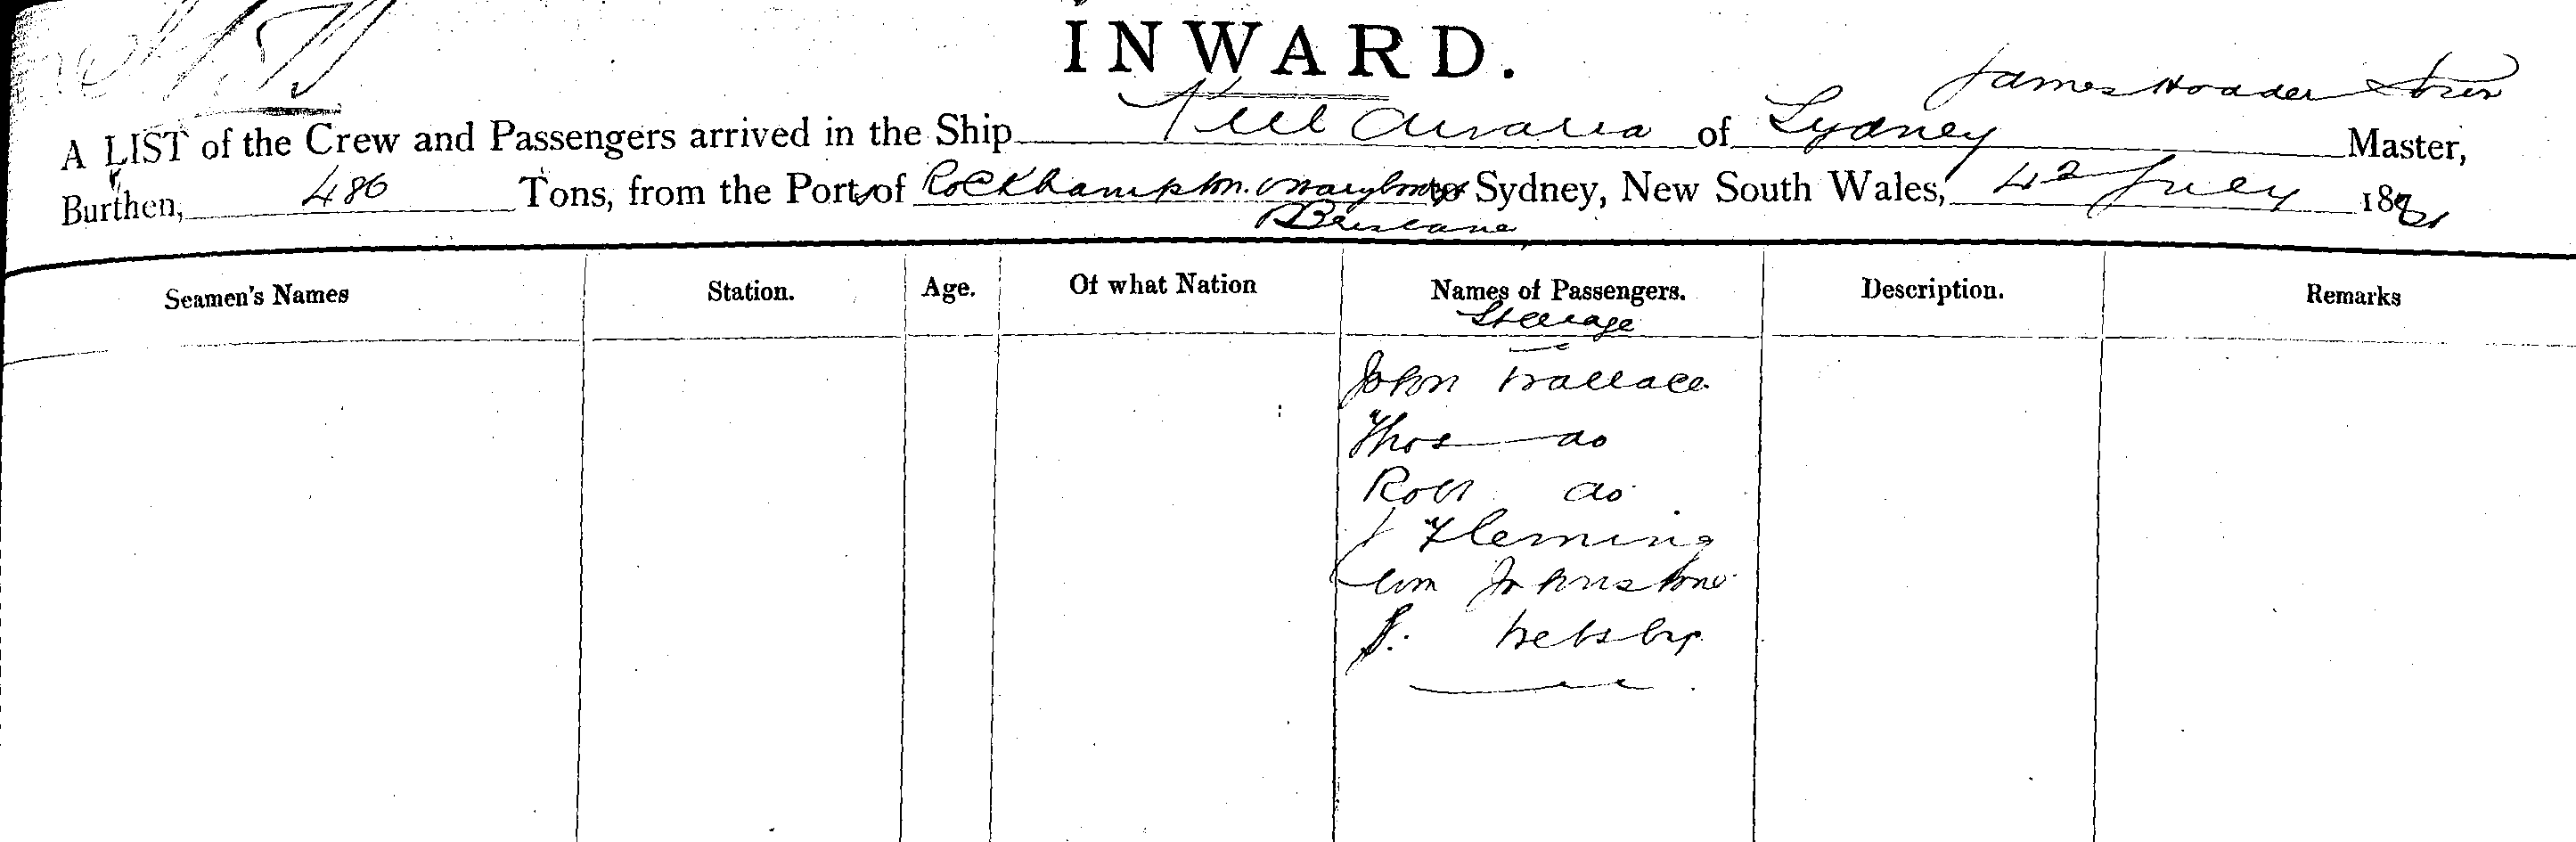 INWARD.
James
A LIST of the Crew and Passengers arrived in the Ship Keilawarra of Sydney Master,
Burthen, 486 Tons, from the Ports of Rockhampton. Maryboro to Sydney, New South Wales, 4th July 1881
& Brisbane
Seamen's Names Station. Age. Of what Nation Names of Passengers. Description. Remarks
Steerage
John Wallace
Thos do
Robt do
J Fleming
Wm Johnstone
J.